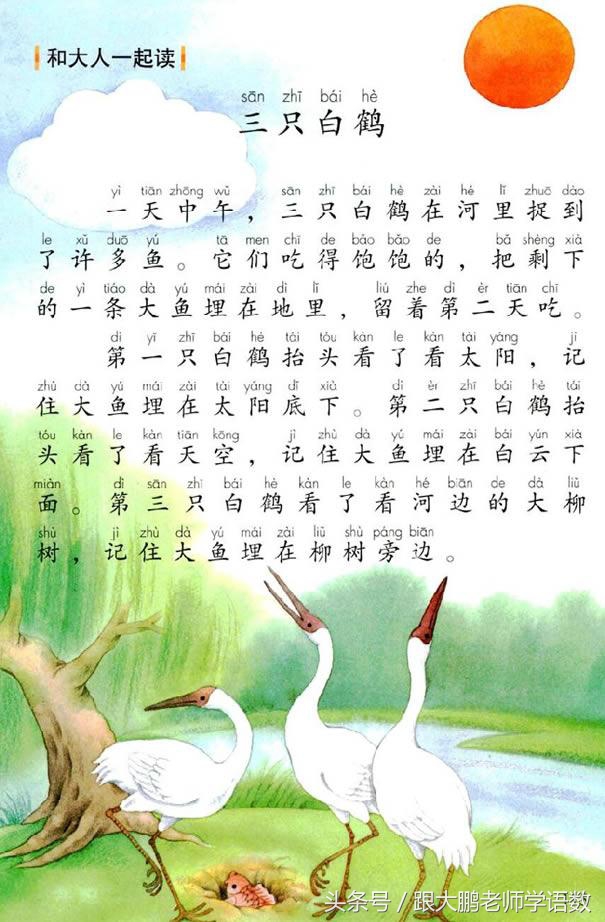 和大人一起读
sān zhī bái hè
三只白鹤
yì tiān zhōng wǔ sān zhī bái hè zài hé lǐ zhuō dào
一天中午，三只白鹤在河里捉到
le xǔ duō yú tā men chī de bǎo bǎo de bǎ shèng xià
了许多鱼。它们吃得饱饱的，把剩下
de yì tiáo dà yú mái zài dì lǐ liú zhe dì èr tiān chī
的一条大鱼埋在地里，留着第二天吃。
dì yī zhī bái hè tái tóu kàn le kàn tài yáng jì
第一只白鹤抬头看了看太阳，记
zhù dà yú mái zài tài yáng dǐ xià dì èr zhī bái hè tái
住大鱼埋在太阳底下。第二只白鹤抬
tóu kàn le kàn tiān kōng jì zhù dà yú mái zài bái yún xià
头看了看天空，记住大鱼埋在白云下
miàn dì sān zhī bái hè kàn le kàn hé biān de dà liǔ
面。第三只白鹤看了看河边的大柳
shù jì zhù dà yú mái zài liǔ shù páng biān
树，记住大鱼埋在柳树旁边。
头条号／跟大鹏老师学语数